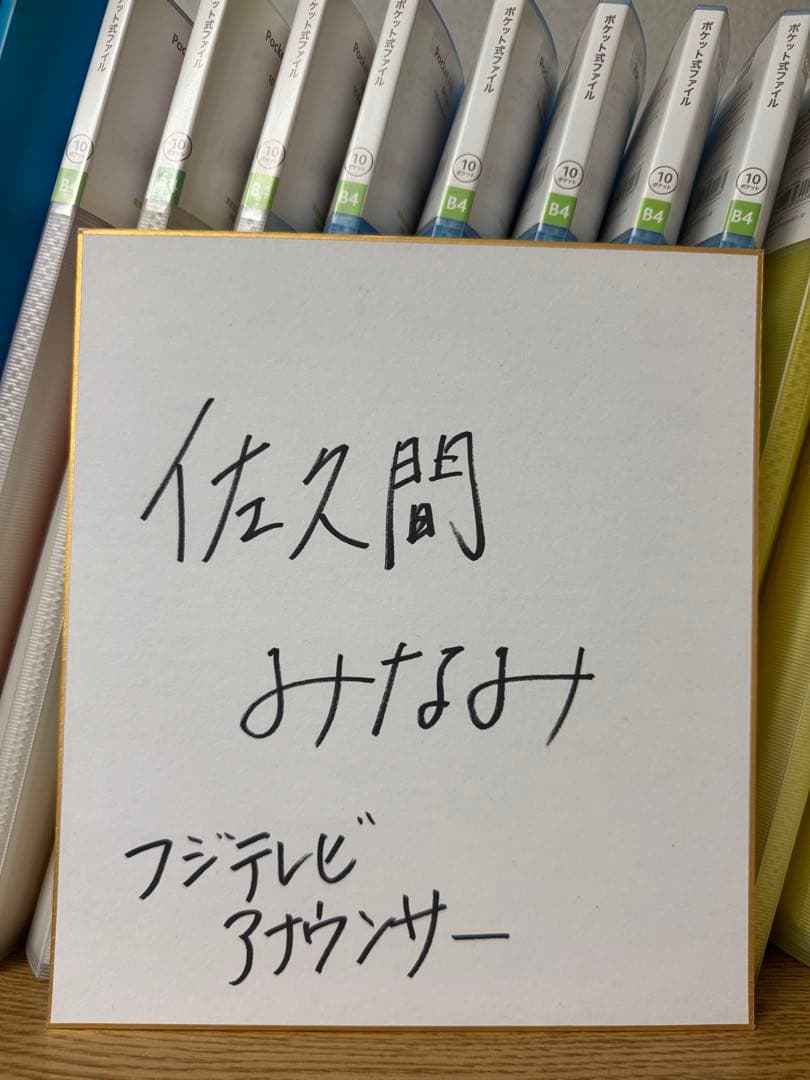 ポケット式ファイル
ポケット式ファイル
ポケット式ファイル
ポケット式ファイル
ポケット式ファイル
ポケット式ファイル
ポケット式ファイル
10
ポケット
B4
10
ポケット
10
ポケット
B4
10
ポケット
B4
10
ポケット
B4
10
ポケット
B4
10
ポケット
B4
10
ポケット
B4
佐久間
みなみ
フジテレビ
アナウンサー